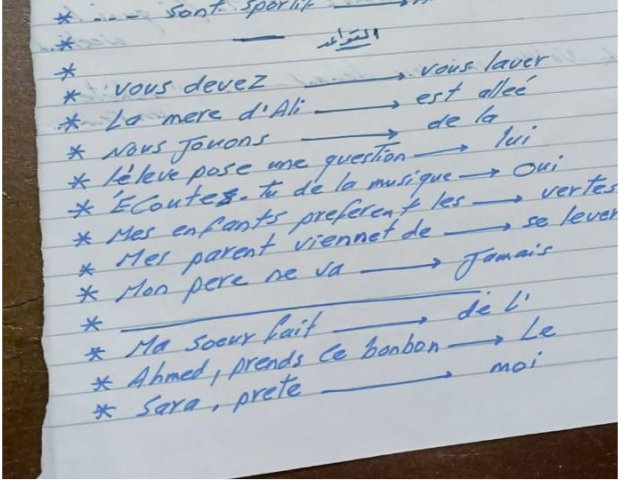 * sont sportif →
*
— القواعد
*
* vous devez → vous laver
* La mere d'Ali → est alleé
* Nous Jouons → de la
* l'éleve pose une question → lui
* ECoutes-tu de la musique → Oui
* Mes enfants preferent les → vertes
* Mes parent viennet de → se lever
* Mon pere ne va → Jamais
*
* Ma soeur fait → de l'
* Ahmed, prends ce bonbon → Le
* Sara, prete → moi